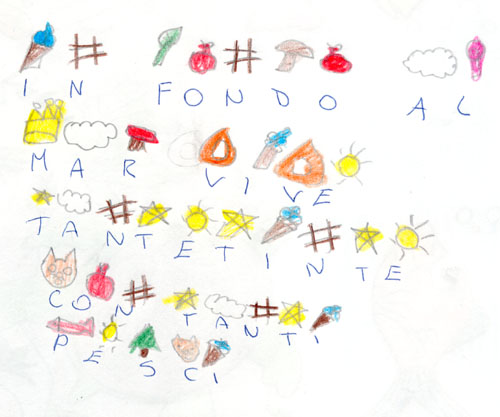 IN FONDO AL
MAR VIVE
TANTETINTE
CON TANTI
PESCI